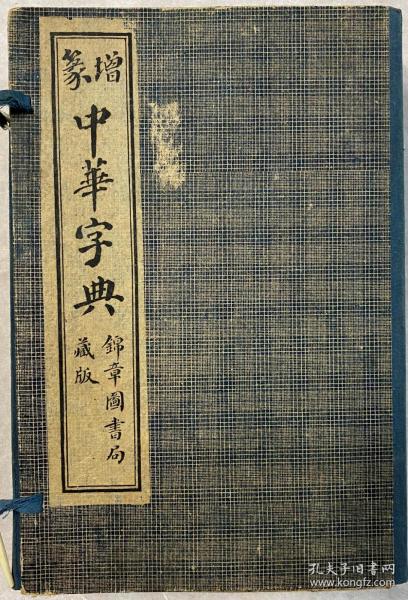 增篆
中華字典
錦章圖書局
藏版
孔夫子旧书网
www.kongfz.com